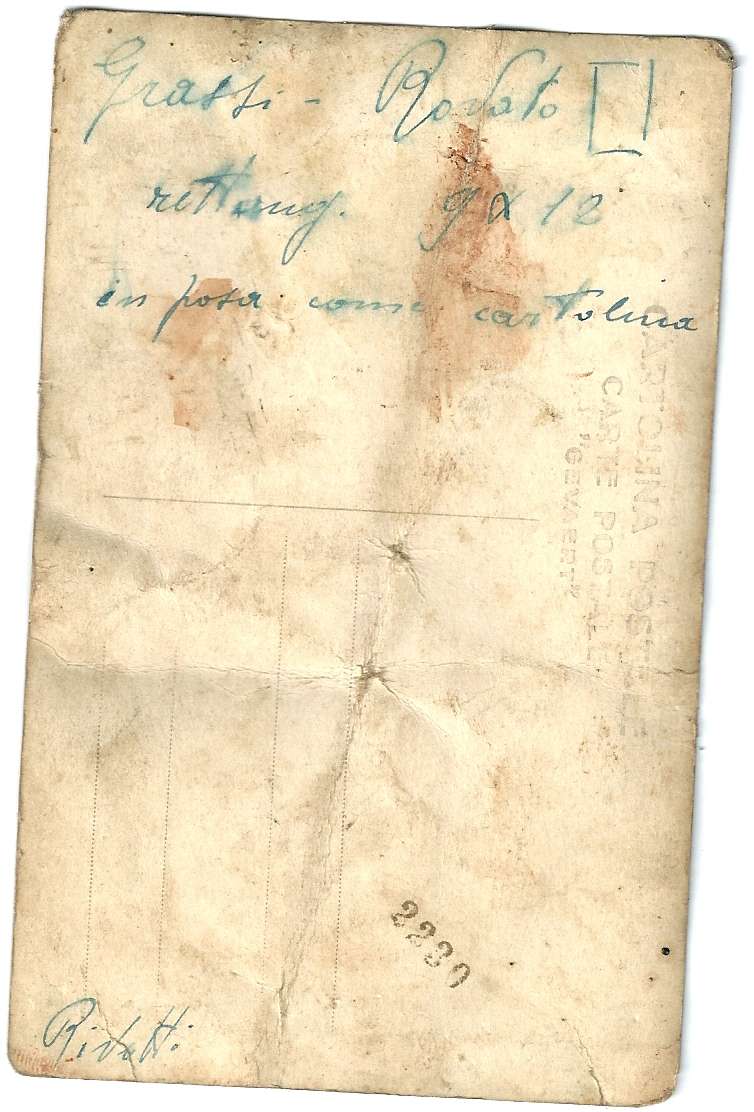 Grassi - Rovato
rettang. 9 x 12
in posa come cartolina
CARTOLINA POSTALE
CARTE POSTALE
"GEVAERT"
2230